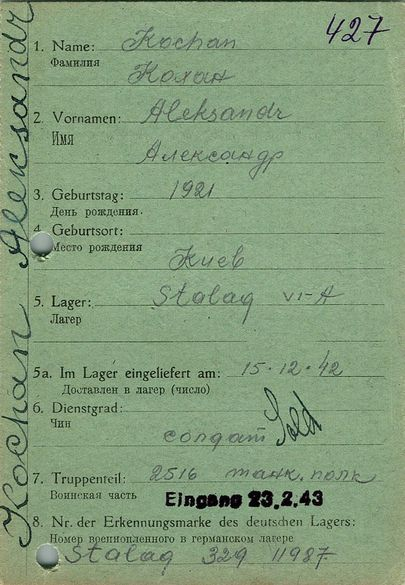 427
Kochan Aleksandr
1. Name: Kochan
Фамилия
Кохан
2. Vornamen: Aleksandr
Имя
Александр
3. Geburtstag: 1921
День рождения.
4. Geburtsort:
Место рождения
Киев
5. Lager: Stalag VI-A
Лагерь
5a. Im Lager eingeliefert am: 15.12.42
Доставлен в лагерь (число)
6. Dienstgrad: Sold
Чин
солдат
7. Truppenteil: 2516 танк. полк
Воинская часть
Eingang 23.2.43
8. Nr. der Erkennungsmarke des deutschen Lagers:
Номер военнопленного в германском лагере
Stalag 329 11987